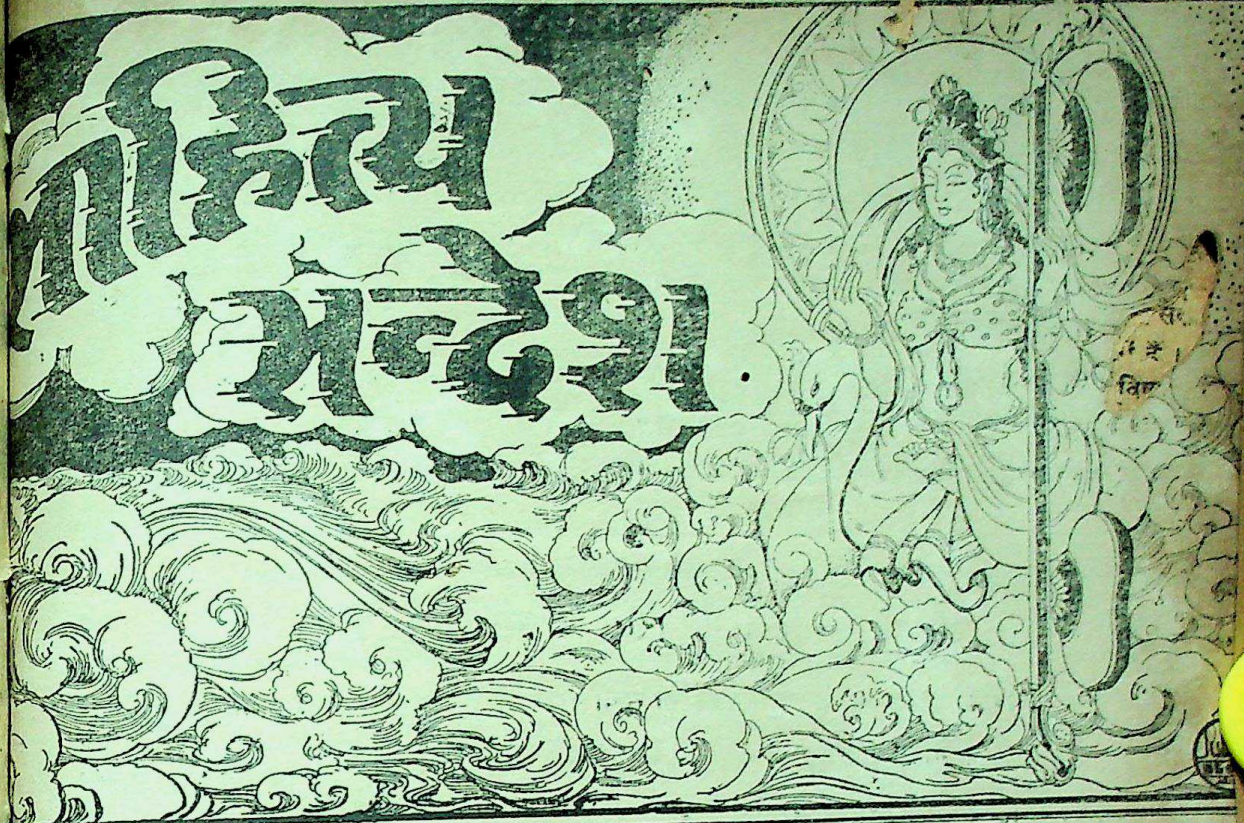 साहित्य
सन्देश